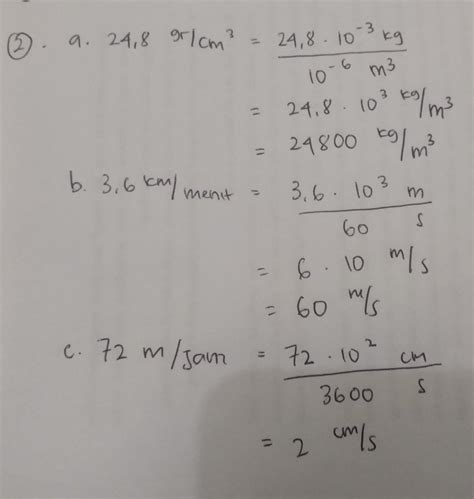 2. a. 24,8 gr/cm³ = 24,8 · 10⁻³ kg / 10⁻⁶ m³
= 24,8 · 10³ kg/m³
= 24800 kg/m³
b. 3,6 km/menit = 3,6 · 10³ m / 60 s
= 6 · 10 m/s
= 60 m/s
c. 72 m/jam = 72 · 10² cm / 3600 s
= 2 cm/s